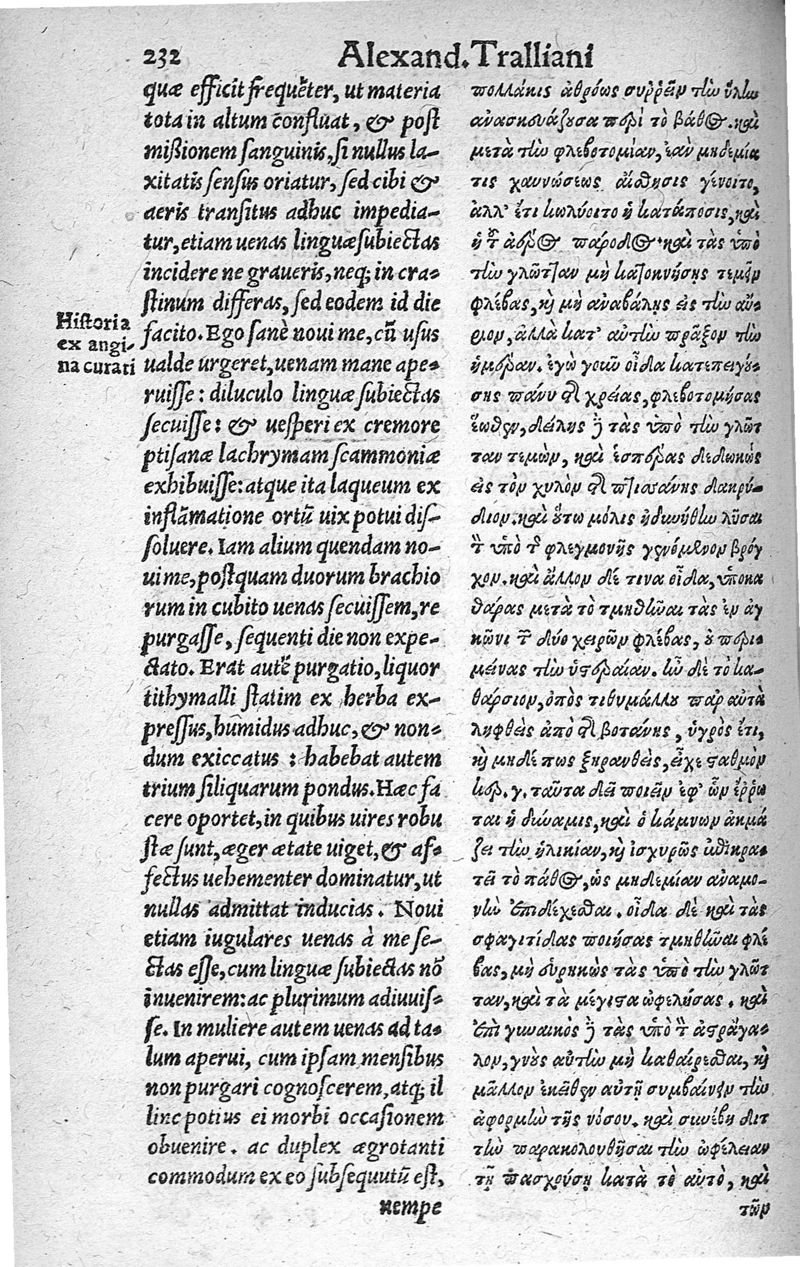 232 Alexand. Tralliani
quæ efficit frequẽter, ut materia
tota in altum confluat, & post
mißionem sanguinis, si nullus la-
xitatis sensus oriatur, sed cibi &
aeris transitus adhuc impedia-
tur, etiam uenas linguæ subiectas
incidere ne graueris, neq; in cra-
stinum differas, sed eodem id die
facito. Ego sanè noui me, cũ usus
ualde urgeret, uenam mane ape-
ruisse: diluculo linguæ subiectas
secuisse: & uesperi ex cremore
ptisanæ lachrymam scammoniæ
exhibuisse: atque ita laqueum ex
inflãmatione ortũ uix potui dis-
soluere. Iam alium quendam no-
ui me, postquam duorum brachio
rum in cubito uenas secuissem, re
purgasse, sequenti die non expe-
ctato. Erat autẽ purgatio, liquor
tithymalli statim ex herba ex-
pressus, humidus adhuc, & non-
dum exiccatus: habebat autem
trium siliquarum pondus. Hæc fa
cere oportet, in quibus uires robu
stæ sunt, æger ætate uiget, & af-
fectus uehementer dominatur, ut
nullas admittat inducias. Noui
etiam iugulares uenas à me se-
ctas esse, cum linguæ subiectas nõ
inuenirem: ac plurimum adiuuis-
se. In muliere autem uenas ad ta-
lum aperui, cum ipsam mensibus
non purgari cognoscerem, atq; il
linc potius ei morbi occasionem
obuenire. ac duplex ægrotanti
commodum ex eo subsequutũ est,
nempe
Historia
ex angi-
na curati
πολλάκις ἀθρόως συῤῥεῖν τὴν ὕλην
ἀνασκευάζουσα περὶ τὸ βάθος. καὶ
μετὰ τὴν φλεβοτομίαν, ἐὰν μηδεμία
τις χαυνώσεως αἴσθησις γένοιτο,
ἀλλ’ ἔτι κωλύοιτο ἡ κατάποσις, καὶ
ἡ τοῦ ἀέρος παροδος. καὶ τὰς ὑπὸ
τὴν γλῶτταν μὴ κατοκνήσῃς τεμεῖν
φλέβας, καὶ μὴ ἀναβάλῃς εἰς τὴν αὔ-
ριον, ἀλλὰ κατ’ αὐτὴν πρᾶξον τὴν
ἡμέραν. ἐγὼ γοῦν οἶδα κατεπειγού-
σης πάνυ τῆς χρείας, φλεβοτομήσας
ἕωθεν, δείλης δὲ τὰς ὑπὸ τὴν γλῶτ
ταν τεμὼν, καὶ ἑσπέρας δεδωκὼς
εἰς τὸν χυλὸν τῆς πτισσάνης δακρύ-
διον. καὶ οὕτω μόλις ἠδυνήθην λῦσαι
τὸν ὑπὸ τῆς φλεγμονῆς γενόμενον βρόγ
χον. καὶ ἄλλον δέ τινα οἶδα, ὑποκα
θάρας μετὰ τὸ τμηθῆναι τὰς ἐν ἀγ
κῶνι τῶν δύο χειρῶν φλέβας, οὐ περι-
μείνας τὴν ὑστεραίαν. ἦν δὲ τὸ κα-
θάρσιον, ὀπὸς τιθυμάλλου παρ αὐτὰ
ληφθεὶς ἀπὸ τῆς βοτάνης, ὑγρὸς ἔτι,
καὶ μηδέπως ξηρανθεὶς, εἶχε σταθμὸν
κερ. γ. ταῦτα δεῖ ποιεῖν ἐφ’ ὧν ἔῤῥω
ται ἡ δύναμις, καὶ ὁ κάμνων ἀκμά
ζει τὴν ἡλικίαν, καὶ ἰσχυρῶς ἐπικρα-
τεῖ τὸ πάθος, ὡς μηδεμίαν ἀναμο-
νὴν ἐπιδέχεσθαι. οἶδα δὲ καὶ τὰς
σφαγιτίδας ποιήσας τμηθῆναι φλέ
βας, μὴ εὑρηκὼς τὰς ὑπὸ τὴν γλῶτ
ταν, καὶ τὰ μέγιστα ὠφελήσας. καὶ
ἐπὶ γυναικὸς δὲ τὰς ὑπὸ τὸν ἀστράγα-
λον, γνοὺς αὐτὴν μὴ καθαίρεσθαι, καὶ
μᾶλλον ἐκεῖθεν αὐτῇ συμβαίνειν τὴν
ἀφορμὴν τῆς νόσου. καὶ συνέβη διτ
τὴν παρακολουθῆσαι τὴν ὠφέλειαν
τῇ πασχούσῃ κατὰ τὸ αὐτὸ, καὶ
τῶν